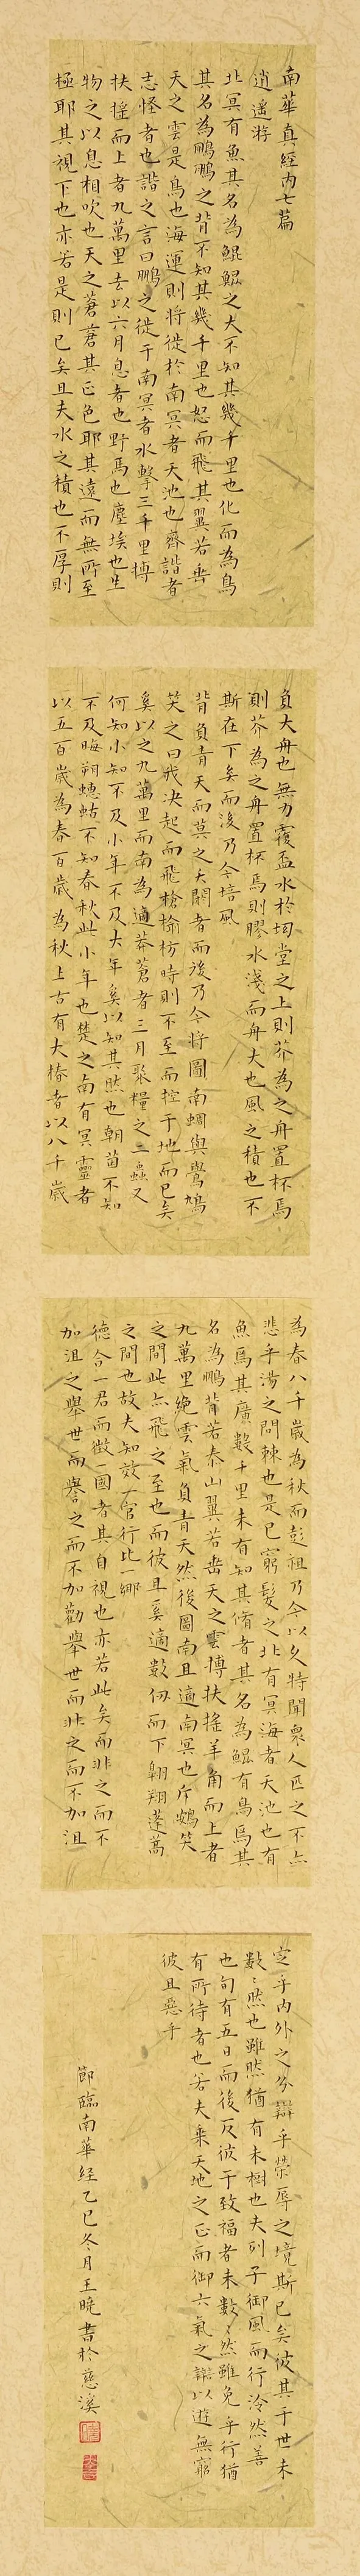 南華真經內七篇
逍遙游
北冥有魚其名為鯤鯤之大不知其幾千里也化而為鳥
其名為鵬鵬之背不知其幾千里也怒而飛其翼若垂
天之雲是鳥也海運則將徙於南冥者天池也齊諧者
志怪者也諧之言曰鵬之徙于南冥者水擊三千里摶
扶搖而上者九萬里去以六月息者也野馬也塵埃也生
物之以息相吹也天之蒼蒼其正色耶其遠而無所至
極耶其視下也亦若是則已矣且夫水之積也不厚則
負大舟也無力覆盃水於坳堂之上則芥為之舟置杯焉
則芥為之舟置杯焉則膠水淺而舟大也風之積也不
斯在下矣而後乃今培風
背負青天而莫之夭閼者而後乃今將圖南蜩與鷽鳩
笑之曰我決起而飛槍榆枋時則不至而控于地而已矣
奚以之九萬里而南為適莽蒼者三月聚糧之二蟲又
何知小知不及小年不及大年奚以知其然也朝菌不知
不及晦朔蟪蛄不知春秋此小年也楚之南有冥靈者
以五百歲為春百歲為秋上古有大椿者以八千歲
為春八千歲為秋而彭祖乃今以久特聞衆人匹之不亦
悲乎湯之問棘也是已窮髮之北有冥海者天池也有
魚焉其廣數千里未有知其脩者其名為鯤有鳥焉其
名為鵬背若泰山翼若垂天之雲摶扶搖羊角而上者
九萬里絶雲氣負青天然後圖南且適南冥也斥鴳笑
之間此亦飛之至也而彼且奚適數仞而下翱翔蓬蒿
之間也故夫知效一官行比一鄉
德合一君而徵一國者其自視也亦若此矣而非之而不
加沮之舉世而譽之而不加勸舉世而非之而不加沮
定乎內外之分辯乎榮辱之境斯已矣彼其于世未
數數然也雖然猶有未樹也夫列子御風而行泠然善
也旬有五日而後反彼于致福者未數數然雖免乎行猶
有所待者也若夫乘天地之正而御六氣之辯以遊無窮
彼且惡乎
節臨南華経乙巳冬月王曉書於慈溪